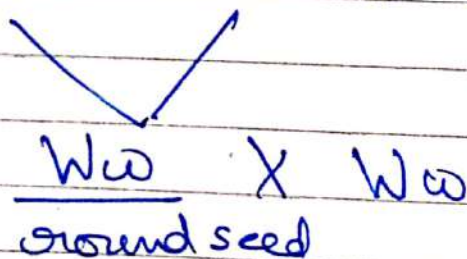 Ww X Ww
round seed